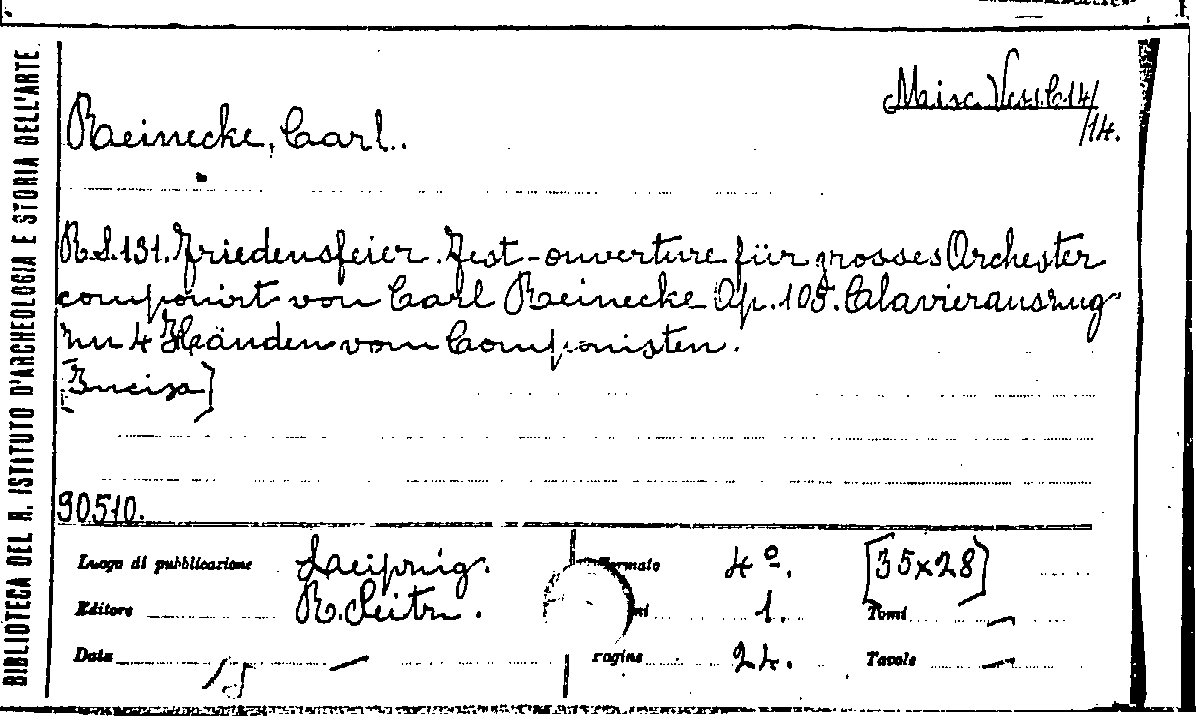 BIBLIOTECA DEL R. ISTITUTO D'ARCHEOLOGIA E STORIA DELL'ARTE
Misc. Vess. C 14/
/14.
Reinecke, Carl.
R.S. 131. Friedensfeier. Fest-ouverture für grosses Orchester
componirt von Carl Reinecke Op. 105. Clavierauszug
zu 4 Händen vom Componisten.
[Incisa]
90510.
Luogo di pubblicazione Leipzig. Formato 4º. [35x28]
Editore R. Seitz. 1. Tomi —
Data — Pagine 24. Tavole —